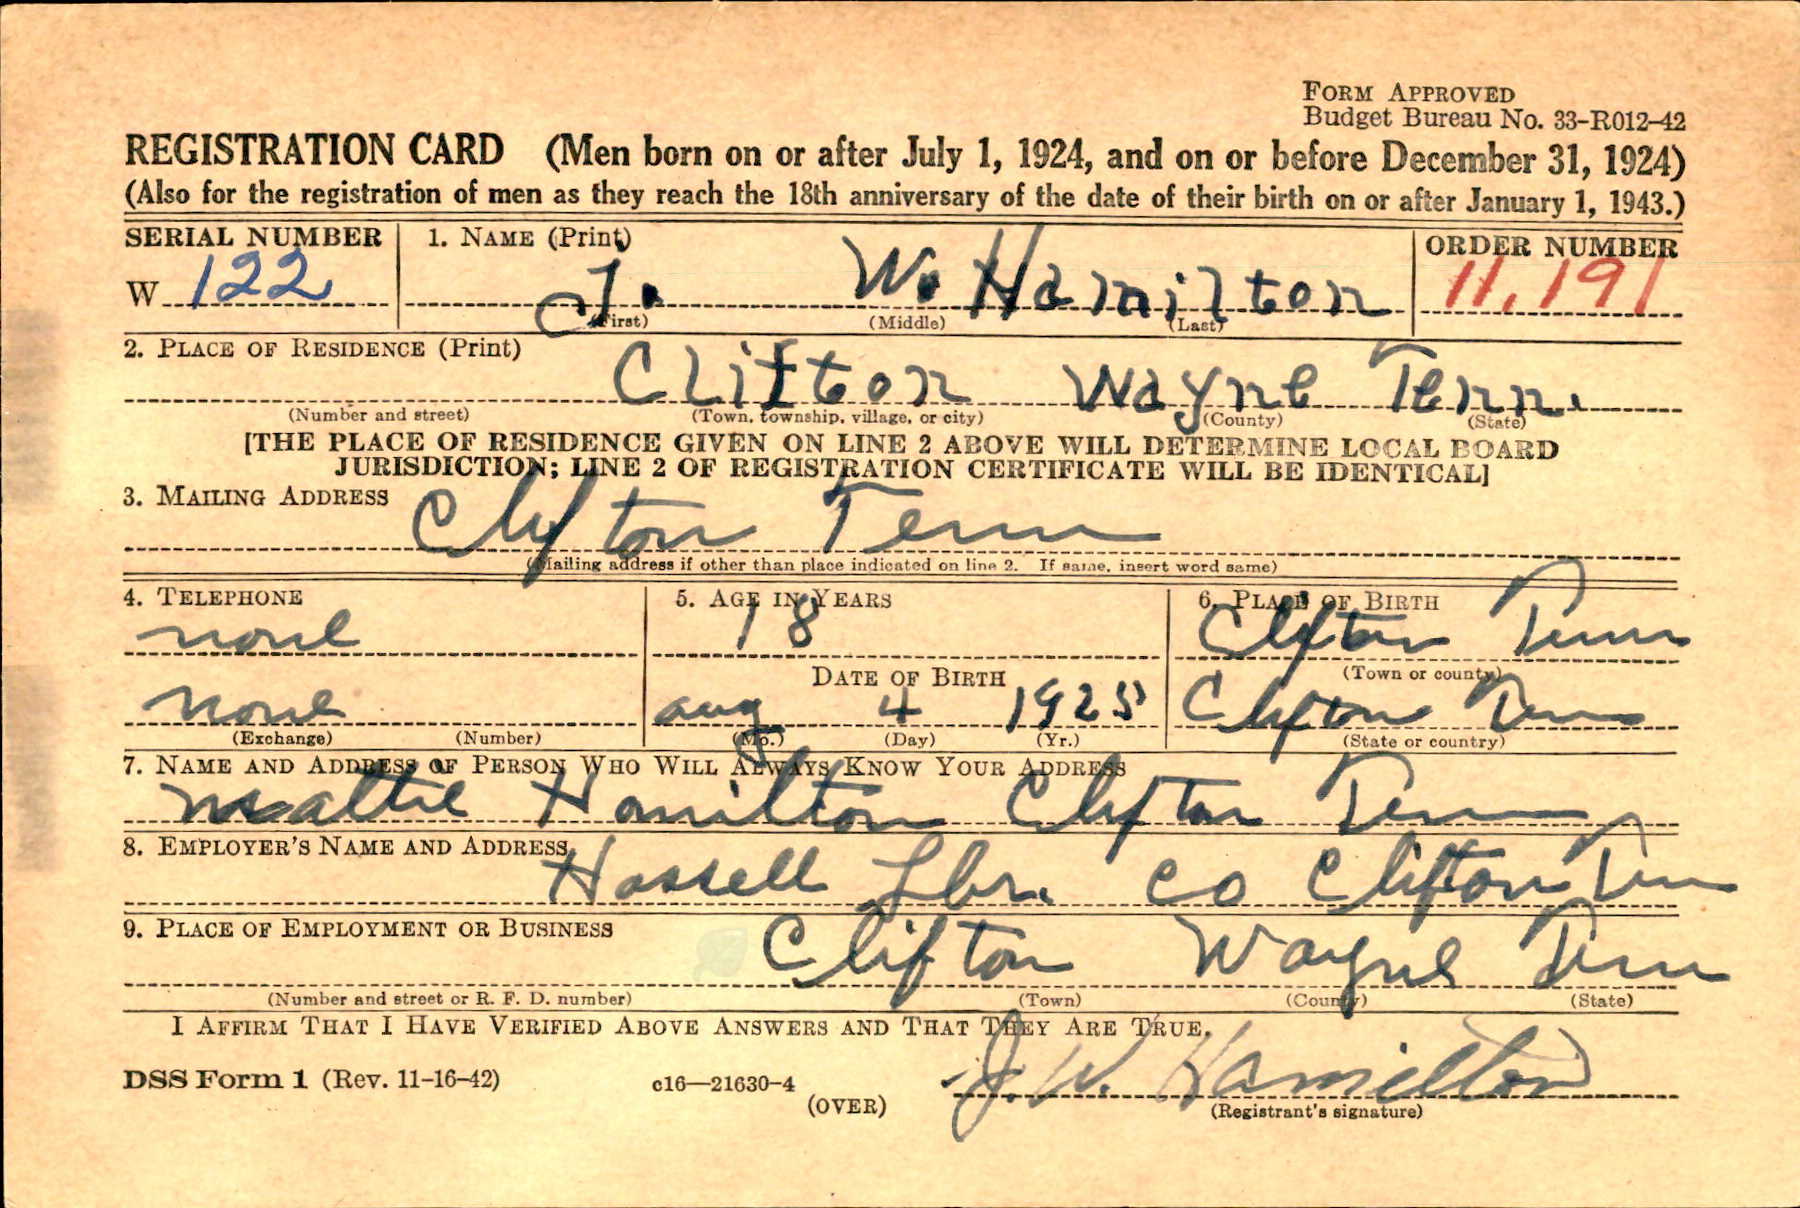 FORM APPROVED
Budget Bureau No. 33-R012-42
REGISTRATION CARD (Men born on or after July 1, 1924, and on or before December 31, 1924)
(Also for the registration of men as they reach the 18th anniversary of the date of their birth on or after January 1, 1943.)
SERIAL NUMBER 1. NAME (Print) ORDER NUMBER
W 122 J. W. Hamilton 11,191
(First) (Middle) (Last)
2. PLACE OF RESIDENCE (Print)
Clifton Wayne Tenn.
(Number and street) (Town, township, village, or city) (County) (State)
[THE PLACE OF RESIDENCE GIVEN ON LINE 2 ABOVE WILL DETERMINE LOCAL BOARD
JURISDICTION; LINE 2 OF REGISTRATION CERTIFICATE WILL BE IDENTICAL]
3. MAILING ADDRESS
Clifton Tenn
(Mailing address if other than place indicated on line 2. If same, insert word same)
4. TELEPHONE 5. AGE IN YEARS 6. PLACE OF BIRTH
none 18 Clifton Tenn
DATE OF BIRTH (Town or county)
none aug 4 1925 Clifton Tenn
(Exchange) (Number) (Mo.) (Day) (Yr.) (State or country)
7. NAME AND ADDRESS OF PERSON WHO WILL ALWAYS KNOW YOUR ADDRESS
Mattie Hamilton Clifton Tenn
8. EMPLOYER'S NAME AND ADDRESS
Hassell Lbr. Co Clifton Tenn
9. PLACE OF EMPLOYMENT OR BUSINESS
Clifton Wayne Tenn
(Number and street or R. F. D. number) (Town) (County) (State)
I AFFIRM THAT I HAVE VERIFIED ABOVE ANSWERS AND THAT THEY ARE TRUE.
DSS Form 1 (Rev. 11-16-42) c16—21630-4 J. W. Hamilton
(OVER) (Registrant's signature)